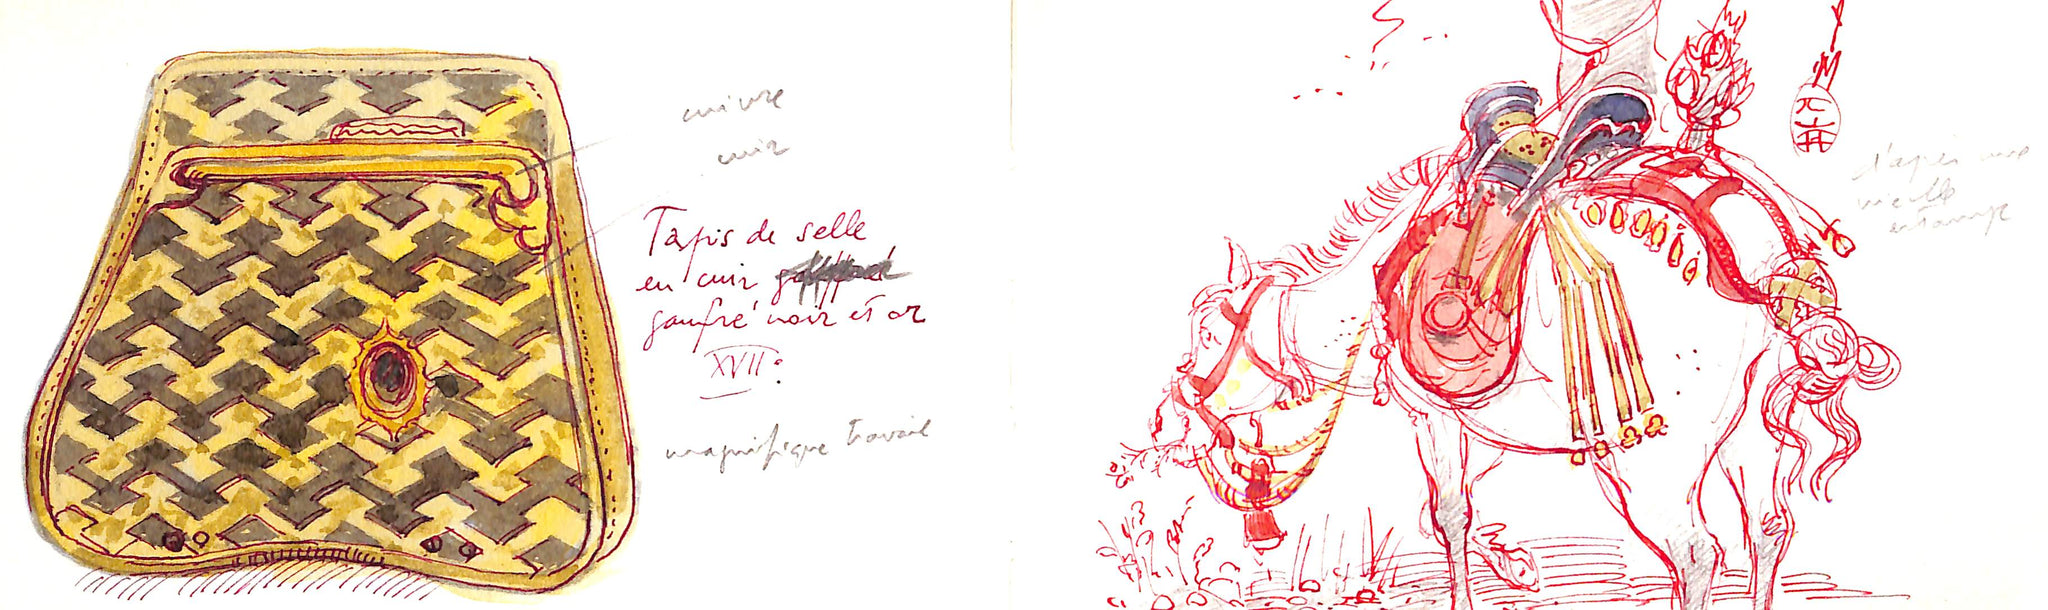 cuivre
cuir
Tapis de selle
en cuir
gaufré noir et or
XVII:
magnifique travail
d'après une
vieille
estampe